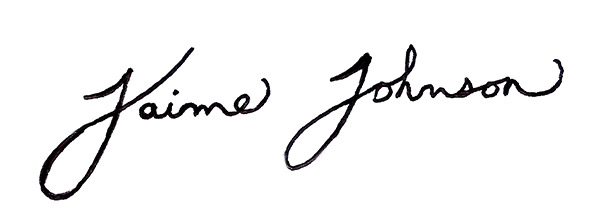 Jaime Johnson